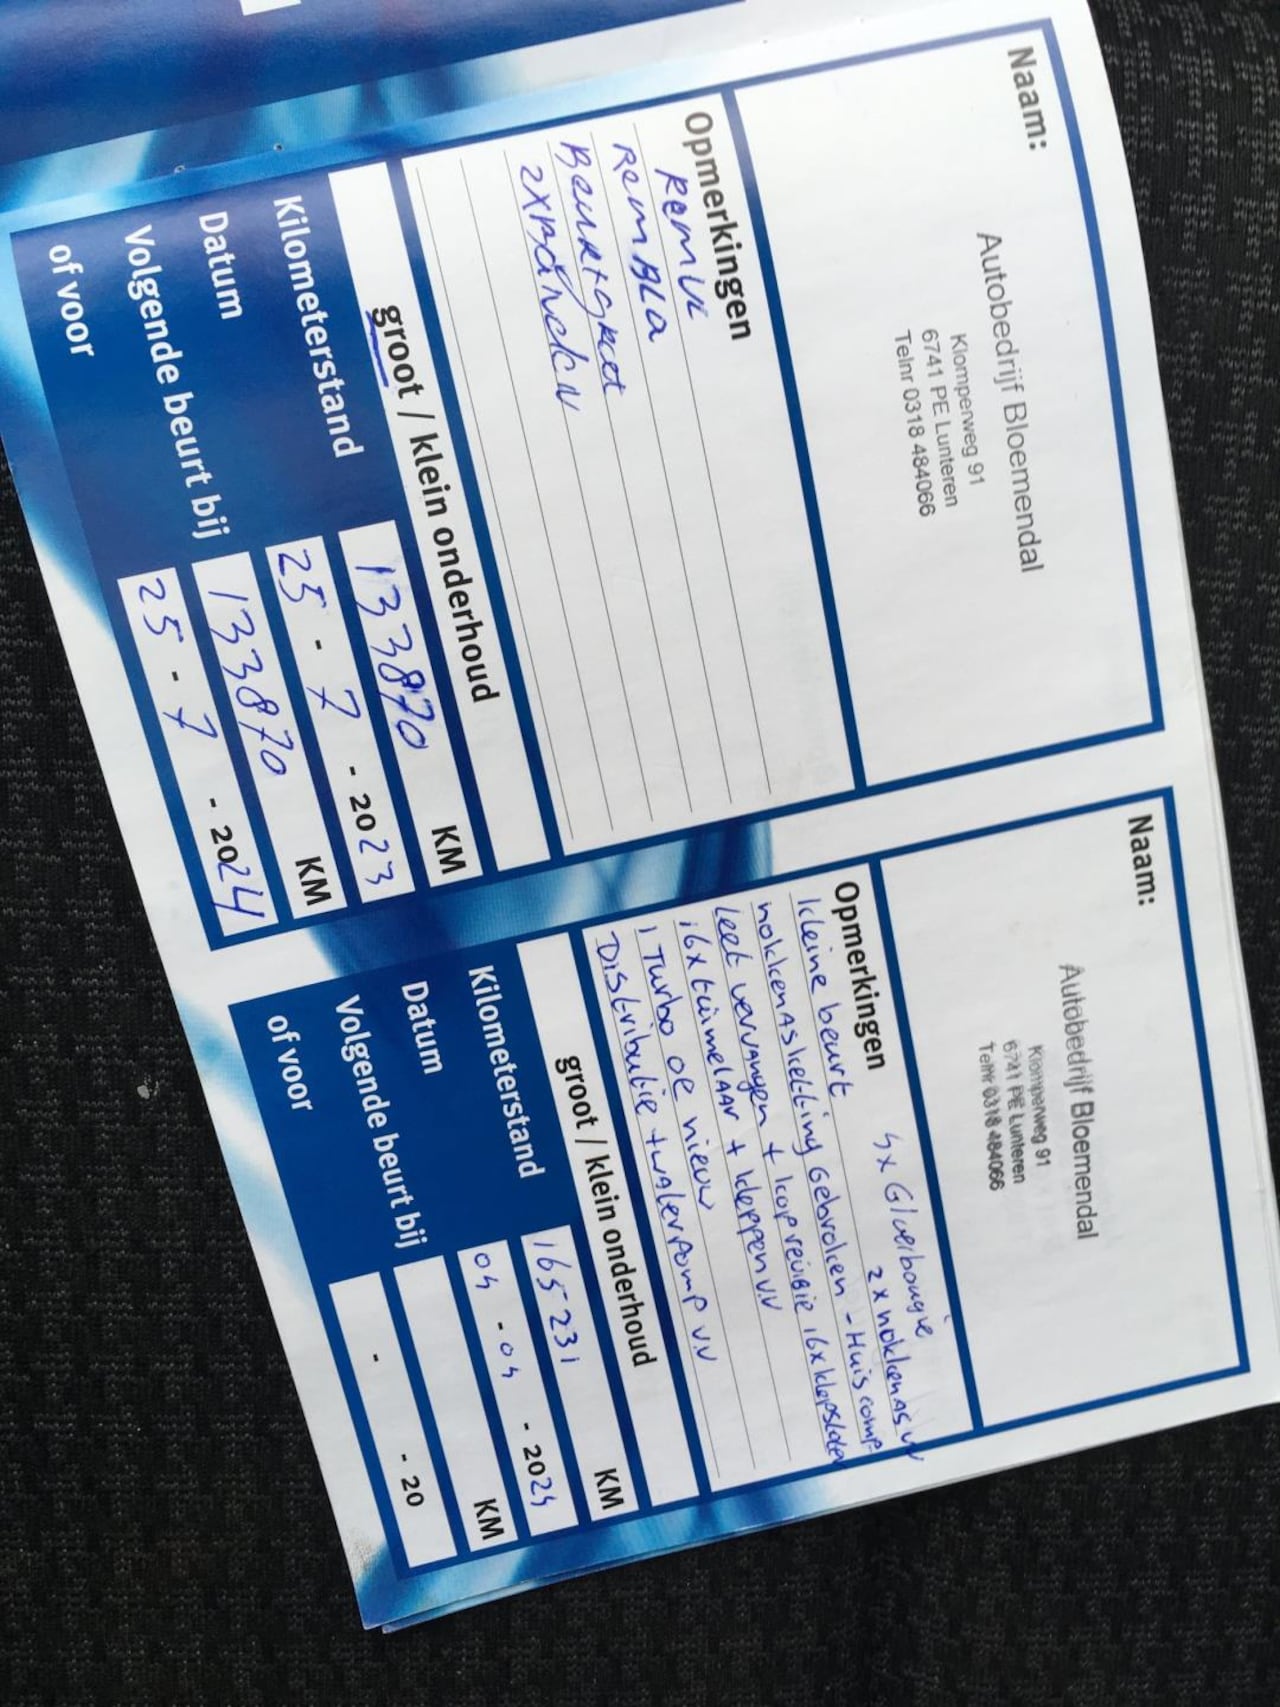 Naam:
Autobedrijf Bloemendal
Klomperweg 91
6741 PE Lunteren
Telnr 0318 484066
Opmerkingen
Rem
Rem
Beurt+groot
2x Banden
groot / klein onderhoud
Kilometerstand 133870 KM
Datum 25 - 7 - 2023
Volgende beurt bij 133870 KM
of voor 25 - 7 - 2024
Naam:
Autobedrijf Bloemendal
Klomperweg 91
6741 PE Lunteren
Telnr 0318 484066
Opmerkingen 4x Gloeibougie
kleine beurt 2x nokkenas vv
nokkenasketting Gebroken - Huis comp.
Leet vervangen + kop revisie 16x klepsloten
16x tuimelaar + kleppen V.V
1 Turbo oe nieuw
Distributie + waterpomp V.V
groot / klein onderhoud
Kilometerstand 165231 KM
Datum 04 - 04 - 2024
Volgende beurt bij KM
of voor - - 20